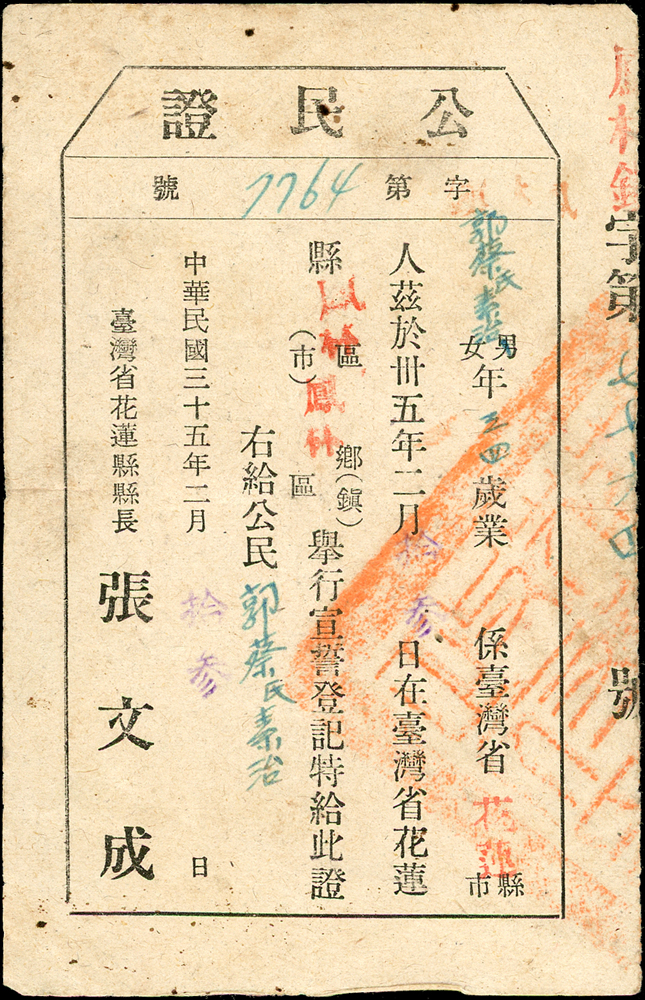 鳳林鎮字第七七六四號
公民證
字第7764號
郭蔡氏素治 男女年三四歲業 係臺灣省花蓮縣市
人茲於卅五年二月拾參日在臺灣省花蓮
縣(市)鳳林區鳳林鄉(鎮)區舉行宣誓登記特給此證
右給公民郭蔡氏素治
中華民國三十五年二月拾參日
臺灣省花蓮縣縣長張文成